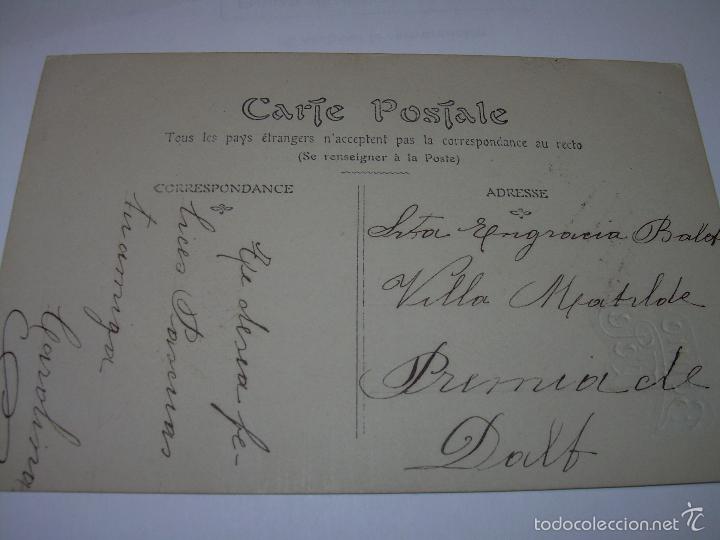 Carte Postale
Tous les pays étrangers n'acceptent pas la correspondance au recto
(Se renseigner à la Poste)
CORRESPONDANCE
ADRESSE
Te desea fe-
lices Pascuas
tu amiga
Carolina
Srta Engracia Ballet
Villa Matilde
Premia de
Dalt
todocoleccion.net